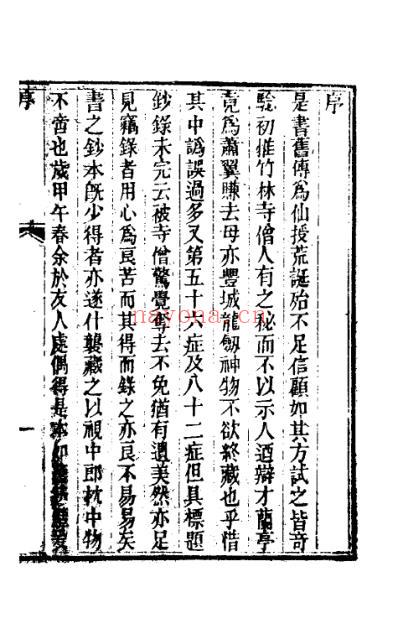 序
是書舊傳為仙授荒誕殆不足信顧如其方試之皆奇
驗初惟竹林寺僧人有之秘而不以示人迺辯才蘭亭
竟為蕭翼賺去毋亦豐城龍劔神物不欲終藏也乎惜
其中譌誤過多又第五十六症及八十二症但具標題
鈔錄未完云被寺僧驚覺奪去不免猶有遺美然亦足
見竊錄者用心為良苦而其得而錄之亦良不易易矣
書之鈔本既少得者亦遂什襲藏之以視中郎枕中物
不啻也歲甲午春余於友人處偶得是本
序
一
nayona.cn